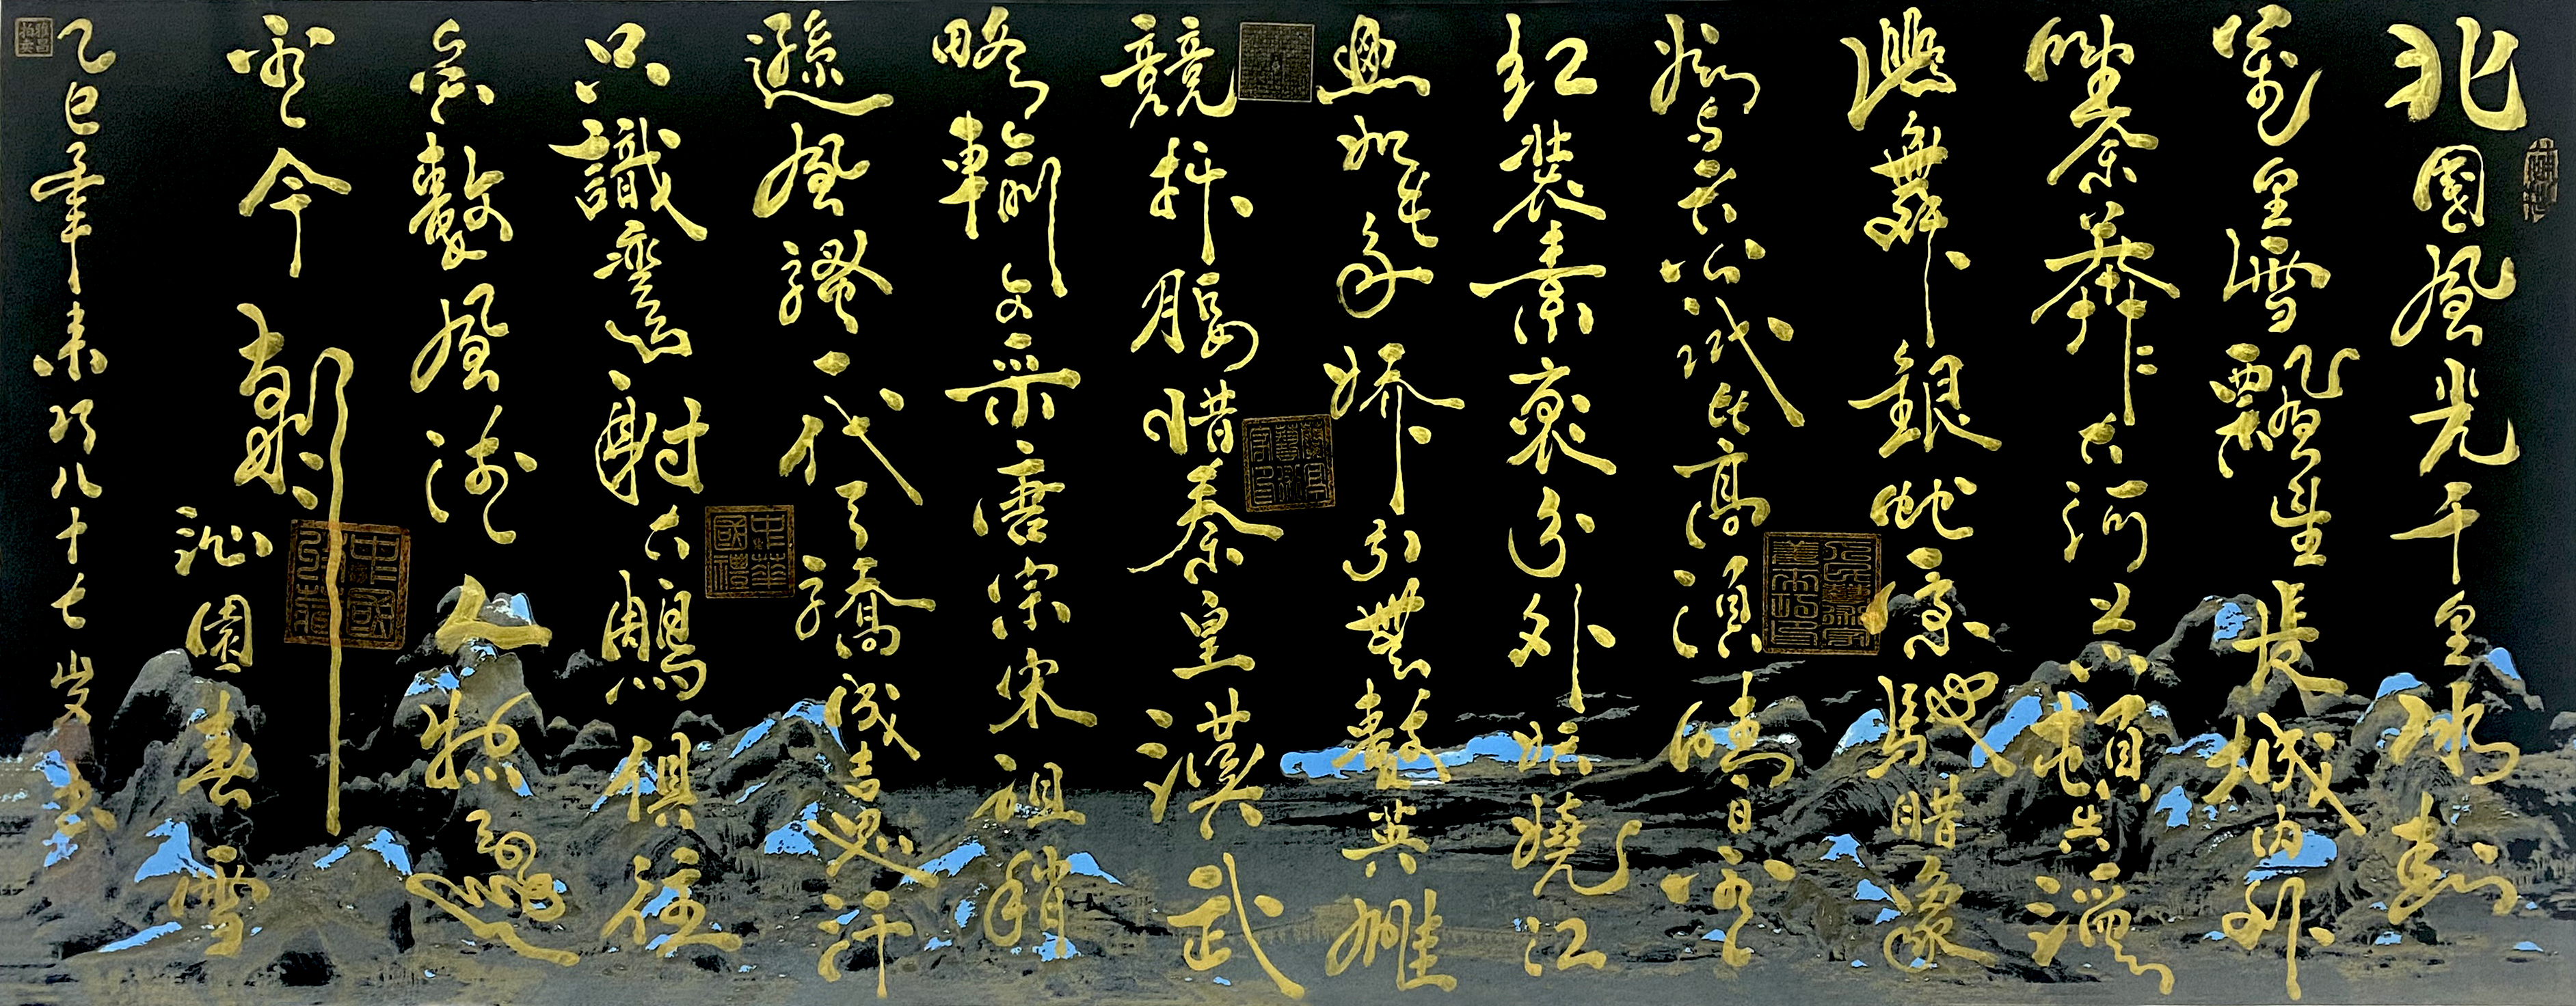 北國風光千里冰封
萬里雪飄望長城內外
惟余莽莽大河上下頓失滔
滔山舞銀蛇原馳蠟象
欲與天公試比高須晴日看
紅裝素裹分外妖嬈江
山如此多嬌引無數英雄
競折腰惜秦皇漢武
略輸文采唐宗宋祖稍
遜風騷一代天驕成吉思汗
只識彎弓射大鵰俱往
矣數風流人物還
看今朝
沁園春雪
乙巳年末八十七歲書
中華國禮
雅昌拍賣